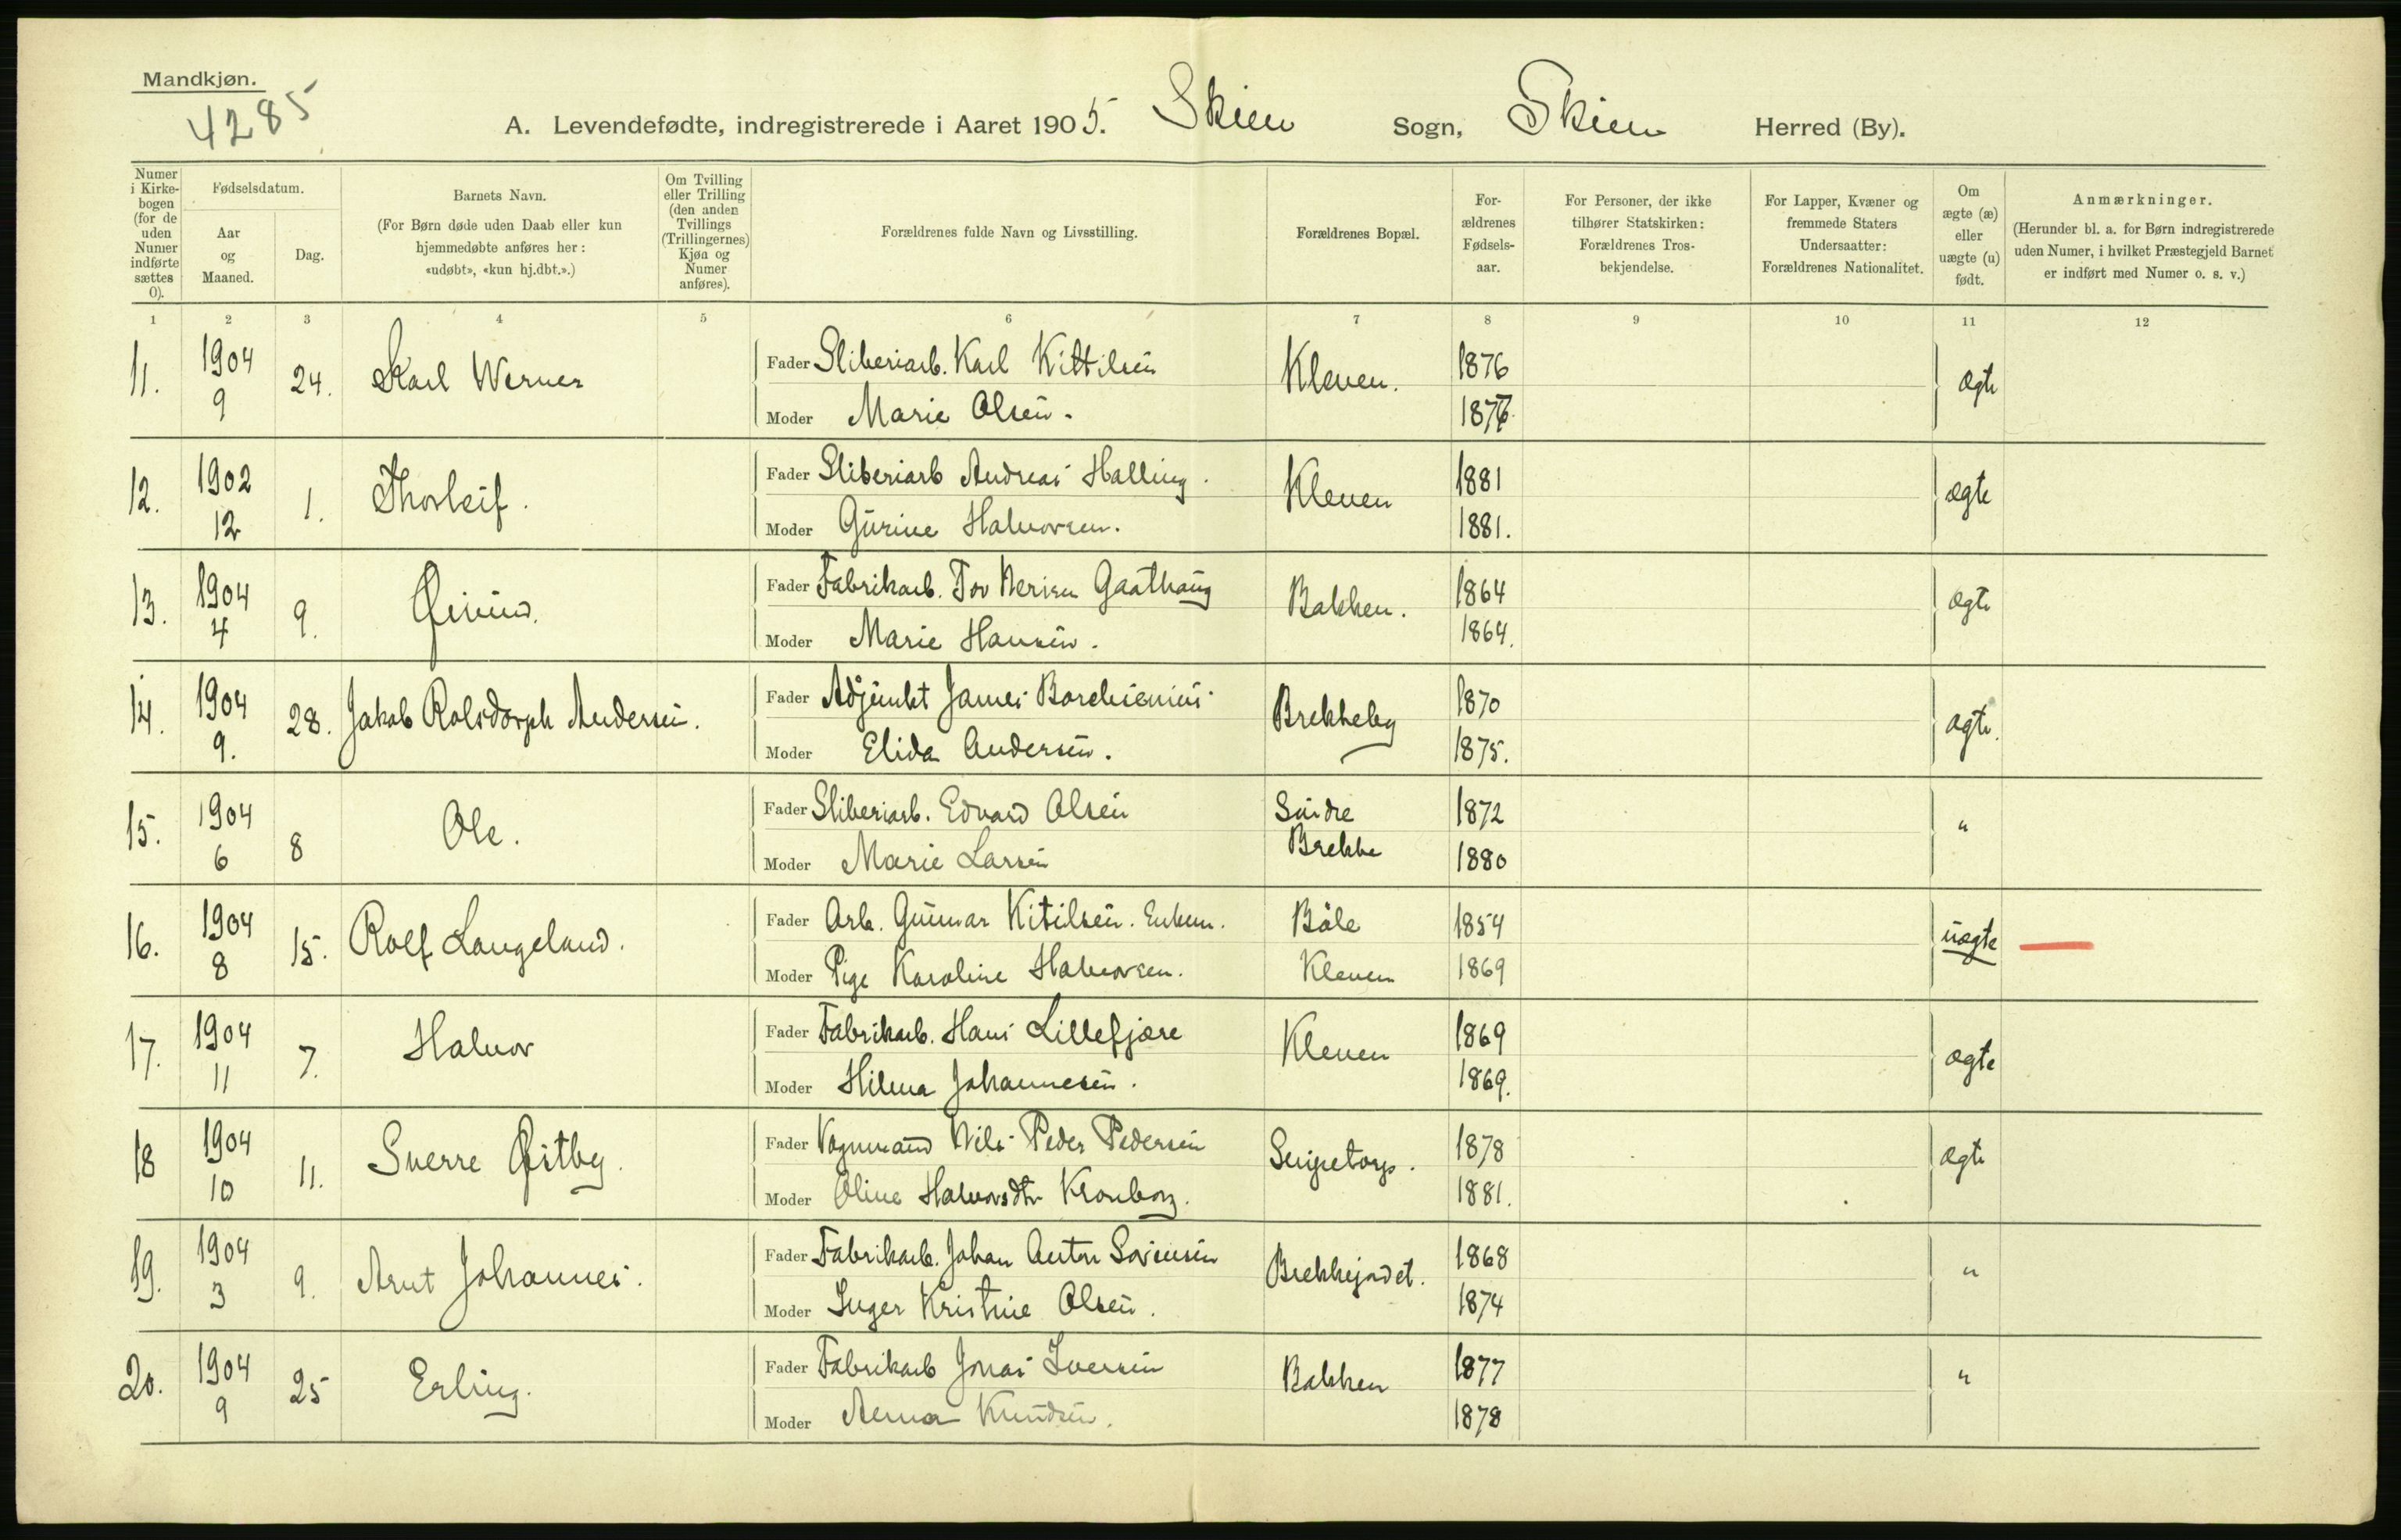 Mandkjøn.
4285
A. Levendefødte, indregistrerede i Aaret 1905. Skien Sogn, Skien Herred (By).
Numer i Kirke-bogen (for de uden Numer indførte sættes 0).
Fødselsdatum.
Aar og Maaned.
Dag.
Barnets Navn.
(For Børn døde uden Daab eller kun hjemmedøbte anføres her: «udøbt», «kun hj.dbt.».)
Om Tvilling eller Trilling (den anden Tvillings (Trillingernes) Kjøn og Numer anføres).
Forældrenes fulde Navn og Livsstilling.
Forældrenes Bopæl.
For-ældrenes Fødsels-aar.
For Personer, der ikke tilhører Statskirken: Forældrenes Tros-bekjendelse.
For Lapper, Kvæner og fremmede Staters Undersaatter: Forældrenes Nationalitet.
Om ægte (æ) eller uægte (u) født.
Anmærkninger.
(Herunder bl. a. for Børn indregistrerede uden Numer, i hvilket Præstegjeld Barnet er indført med Numer o. s. v.)
1 2 3 4 5 6 7 8 9 10 11 12
11. 1904 9 24. Karl Werner
Fader Sliberiarb. Karl Kittilsen Kleven. 1876 ægte
Moder Marie Olsen. 1876.
12. 1902 12 1. Thorleif.
Fader Sliberiarb Andreas Halling. Kleven 1881 ægte
Moder Gurine Halvorsen. 1881.
13. 1904 4 9. Øivind.
Fader Fabrikarb. Tov Nerisen Gaathaug Bakken. 1864 ægte
Moder Marie Hansen. 1864.
14. 1904 9. 28. Jakob Rolsdorph Andersen.
Fader Adjunkt James Borchsenius Brekkeby 1870 ægte.
Moder Elida Andersen. 1875.
15. 1904 6 8 Ole.
Fader Sliberiarb. Edvard Olsen Søndre Brekke 1872 "
Moder Marie Larsen 1880
16. 1904 8 15. Rolf Langeland.
Fader Arb. Gunnar Kitilsen. Enkem. Bøle 1854 uægte
Moder Pige Karoline Halvorsen. Kleven 1869
17. 1904 11 7. Halvor
Fader Fabrikarb. Hans Lillefjære Kleven 1869 ægte
Moder Hilma Johannesen. 1869.
18 1904 10 11. Sverre Østby.
Fader Vognmand Nils Peder Pedersen 1878 ægte
Moder Oline Halvorsdtr Kronborg. 1881.
19. 1904 3 9. Arnt Johannes.
Fader Fabrikarb. Johan Anton Sørensen Brekkejordet. 1868 "
Moder Inger Kristine Olsen. 1874
20. 1904 9 25 Erling.
Fader Fabrikarb Jonas Iversen Bakken 1877 "
Moder Anna Knudsen. 1878